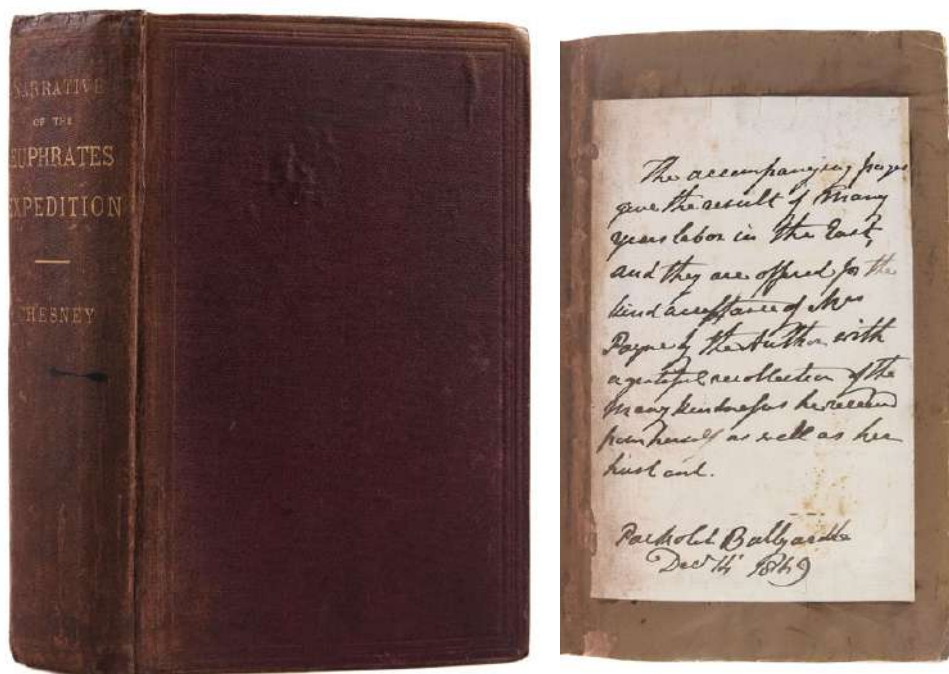 NARRATIVE
OF THE
EUPHRATES
EXPEDITION
CHESNEY
The accompanying pages
give the result of many
years labor in the East,
and they are offered for the
kind acceptance of Mrs
Payne by the Author with
a grateful recollection of the
many kindnesses he received
from herself as well as her
husband.
Packolet
Decr 14th